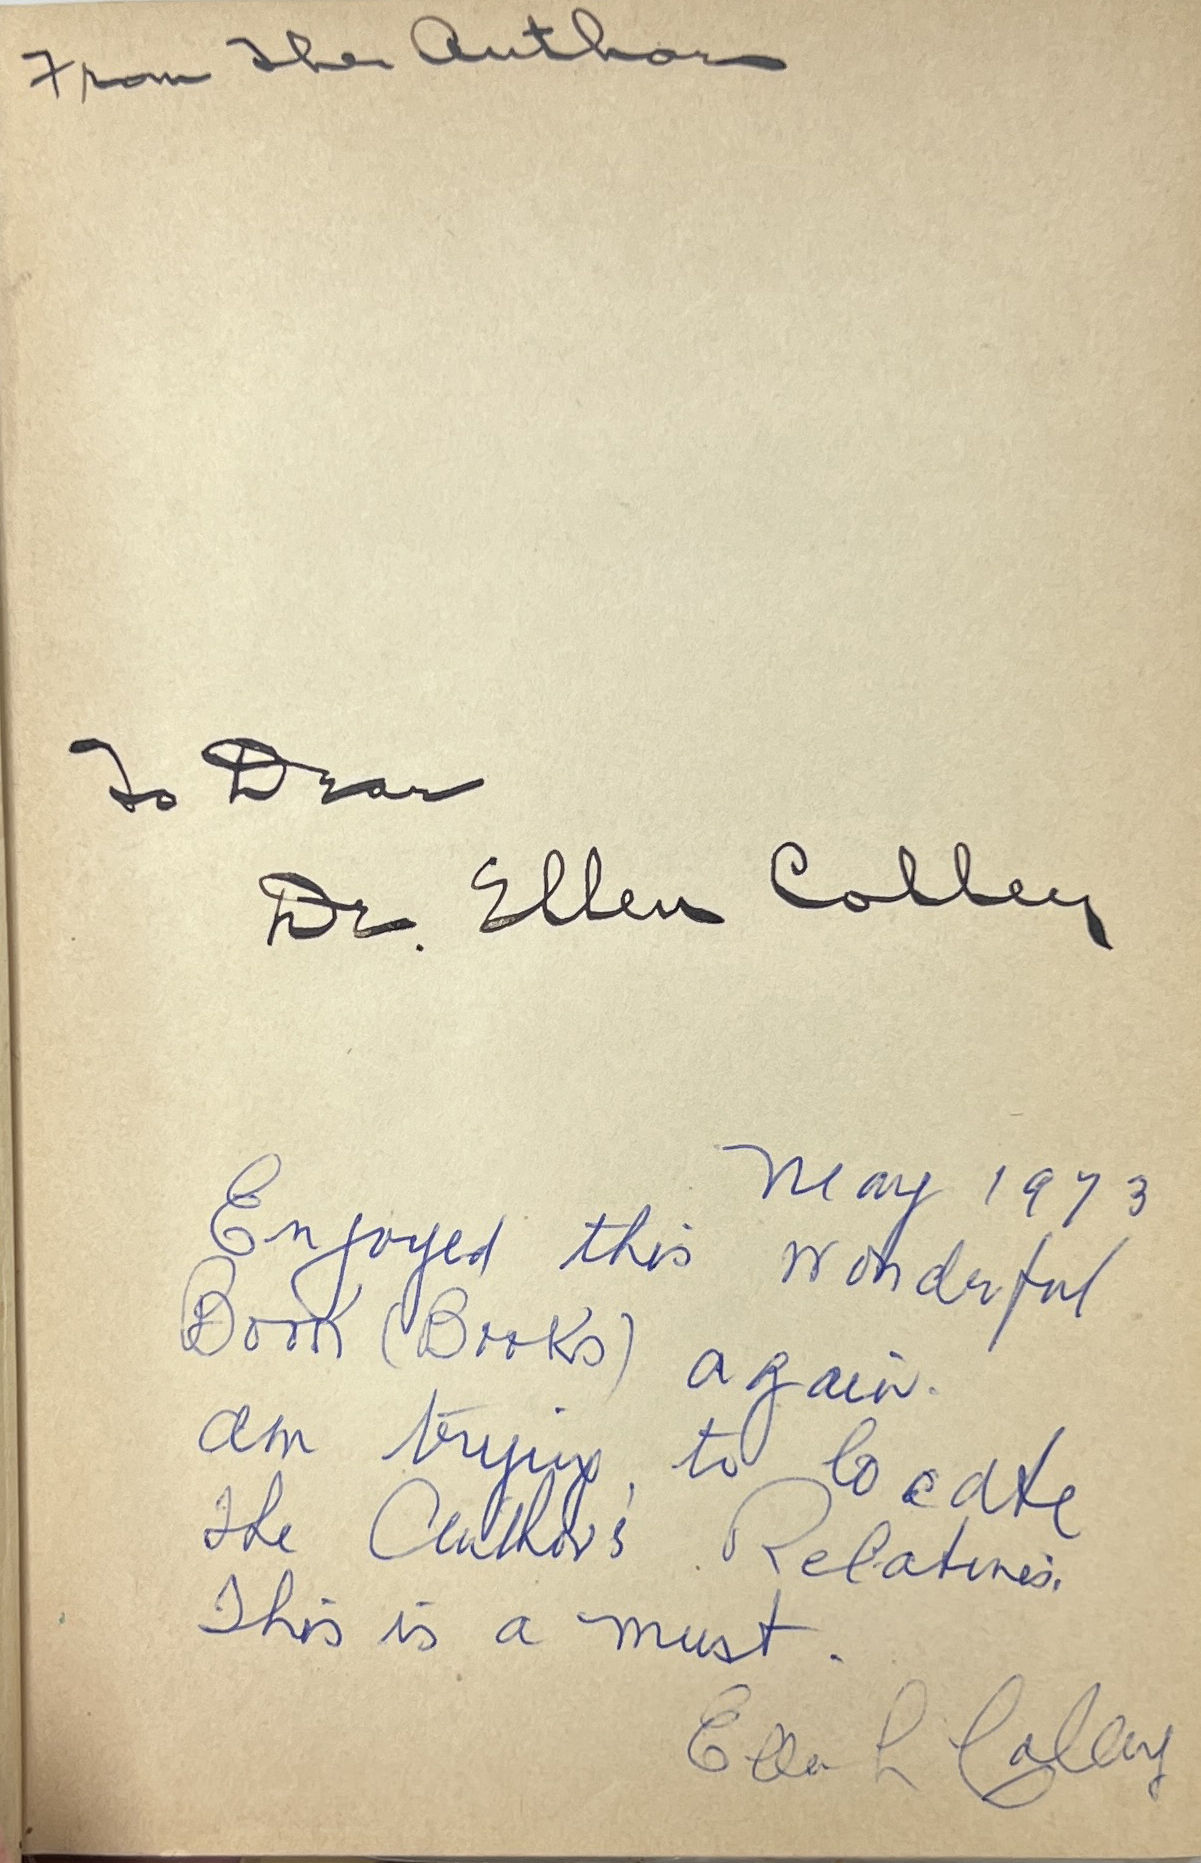 From The Author
To Dear
Dr. Ellen Colley
May 1973
Enjoyed this wonderful
Book (Books) again.
am trying to locate
the Author's Relatives.
This is a must.
Ellen L Colley